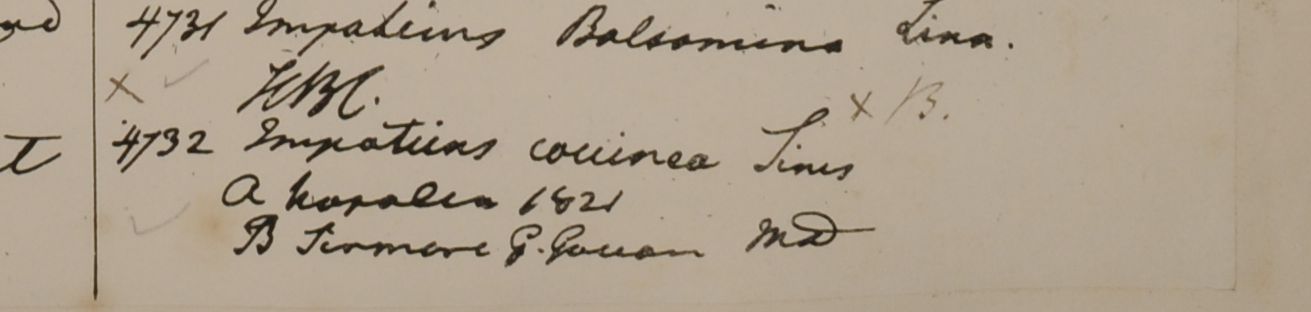 4731 Impatiens Balsamina Linn.
× HBC.
× B.
4732 Impatiens coccinea Sims
A Napalia 1821
B G. Gouan